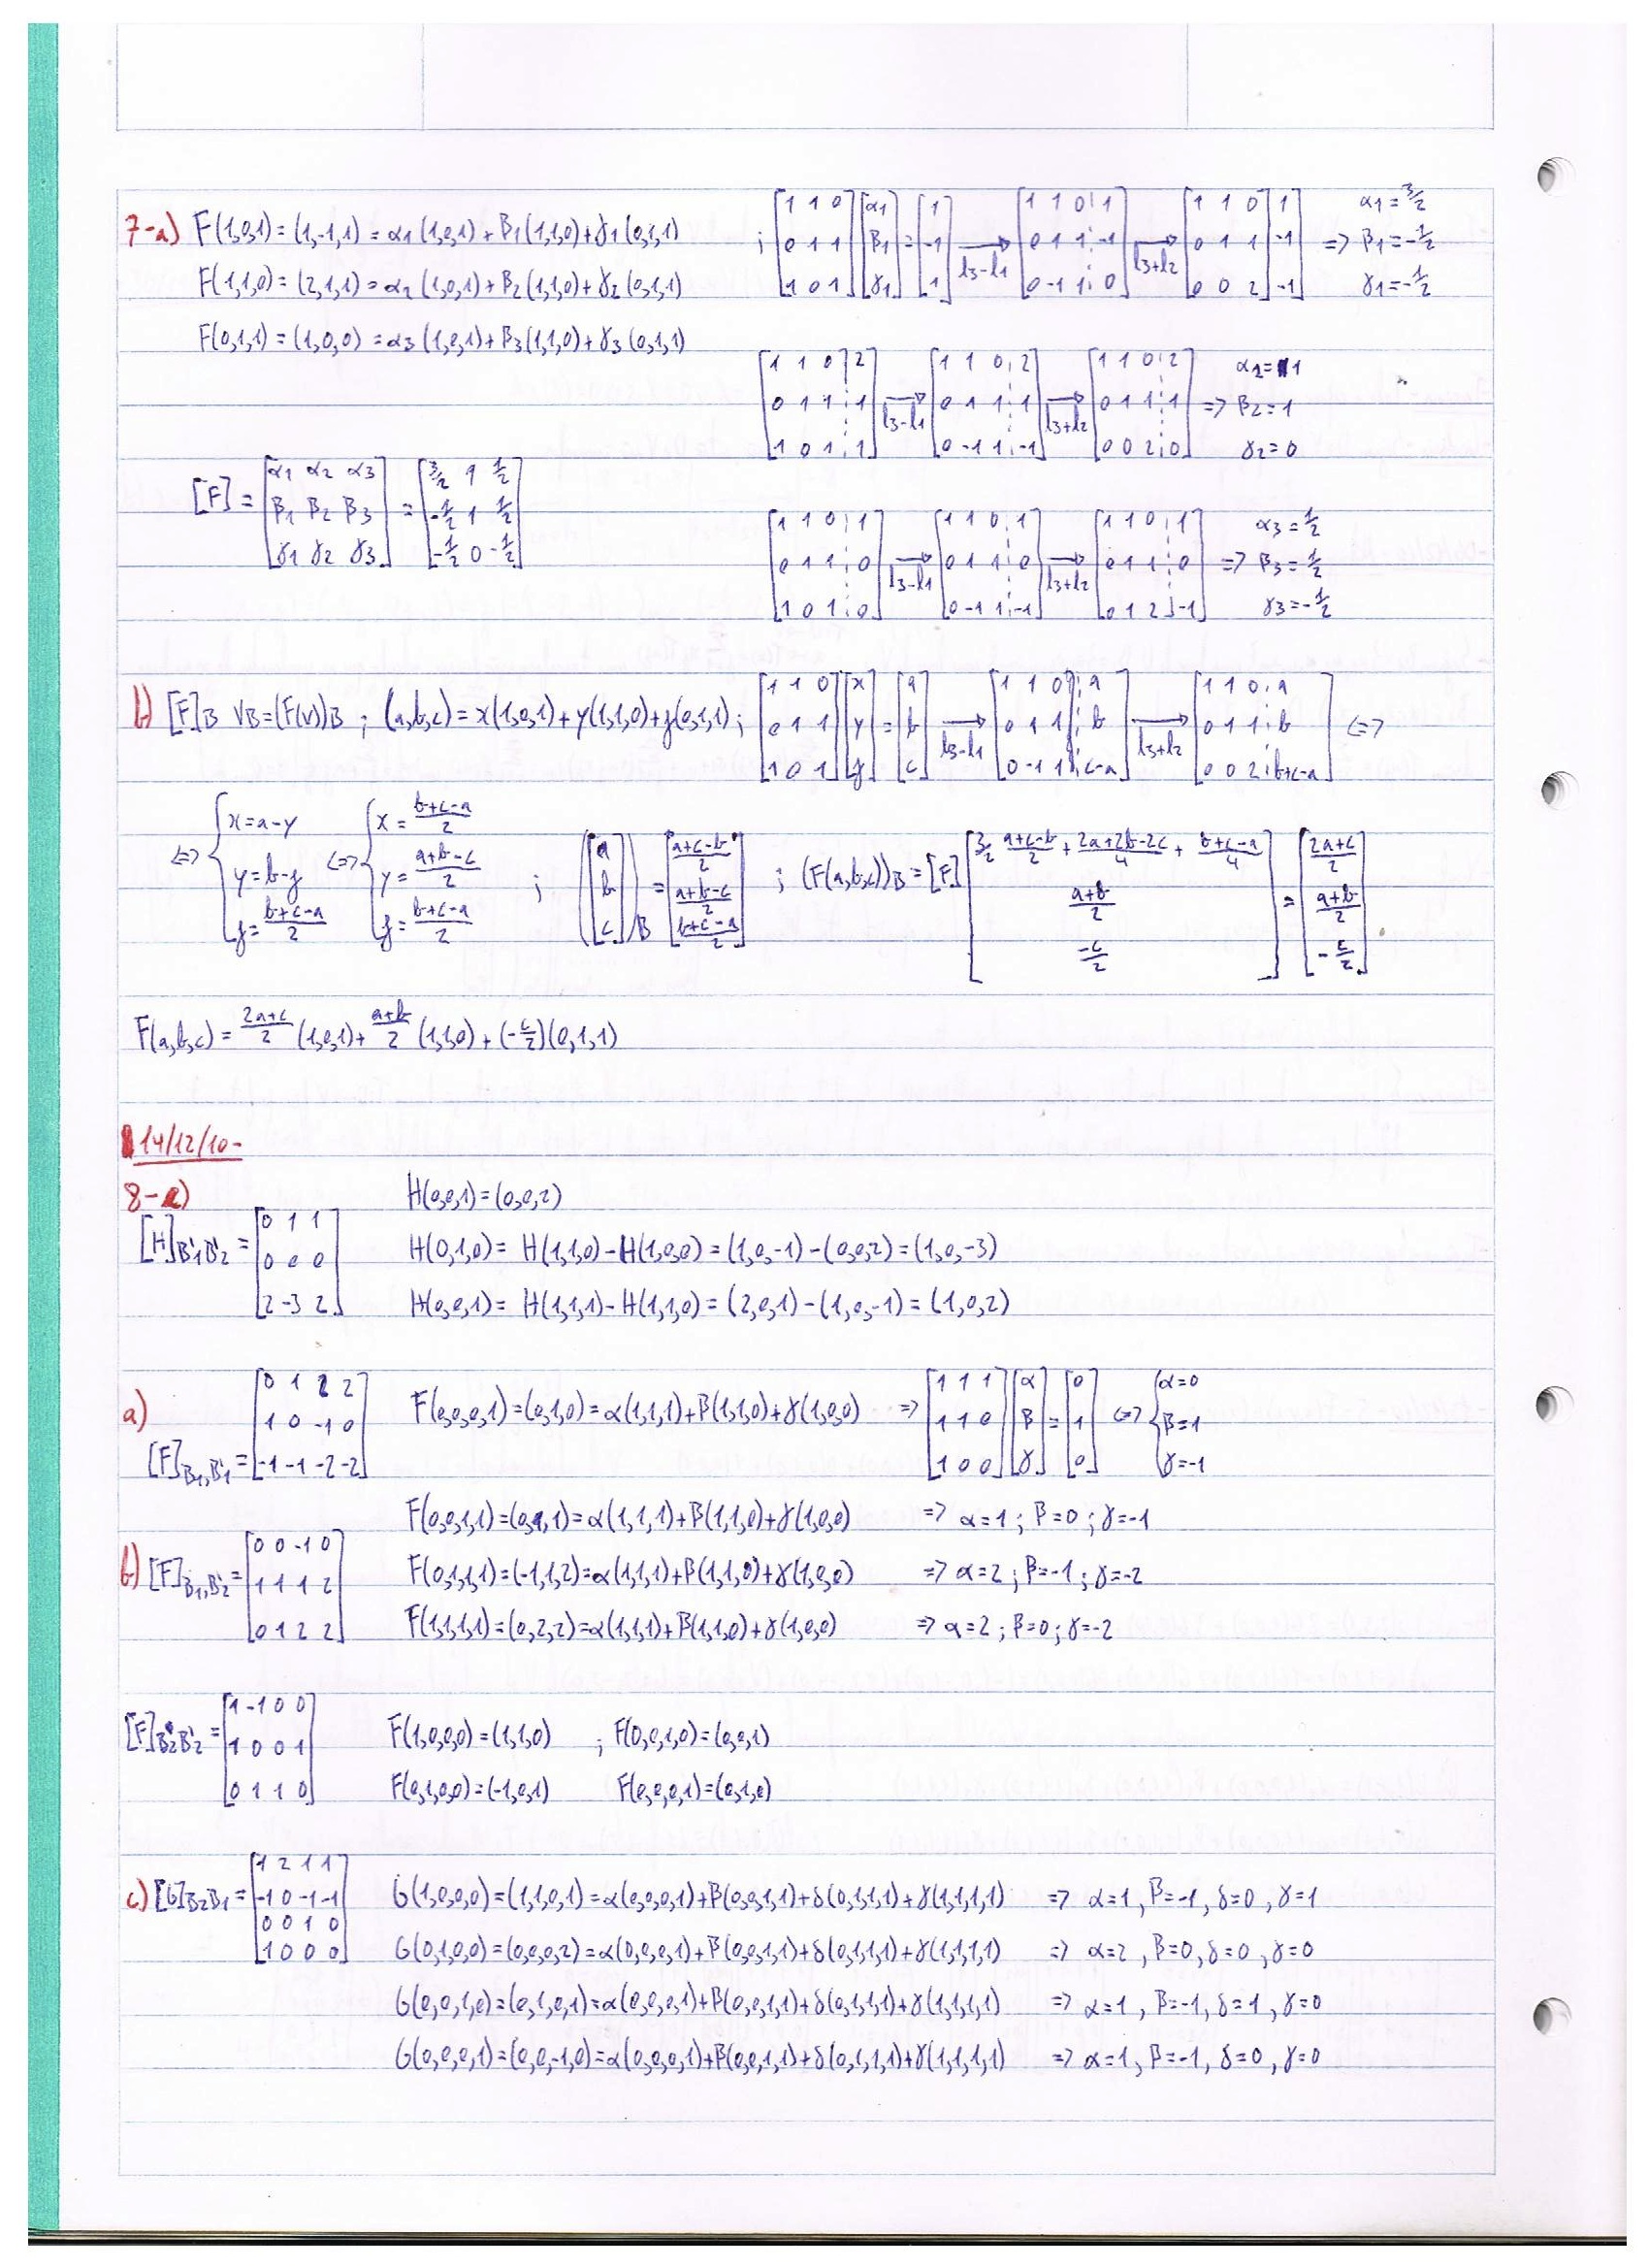 7-a) F(1,0,1) = (1,-1,1) = α1 (1,0,1) + β1 (1,1,0) + γ1 (0,1,1) ; [1 1 0; 0 1 1; 1 0 1] [α1; β1; γ1] = [1; -1; 1] →(l3-l1) [1 1 0 | 1; 0 1 1 | -1; 0 -1 1 | 0] →(l3+l2) [1 1 0 | 1; 0 1 1 | -1; 0 0 2 | -1] => α1 = 3/2 β1 = -1/2 γ1 = -1/2
F(1,1,0) = (2,1,1) = α2 (1,0,1) + β2 (1,1,0) + γ2 (0,1,1)
F(0,1,1) = (1,0,0) = α3 (1,0,1) + β3 (1,1,0) + γ3 (0,1,1)
[1 1 0 | 2; 0 1 1 | 1; 1 0 1 | 1] →(l3-l1) [1 1 0 | 2; 0 1 1 | 1; 0 -1 1 | -1] →(l3+l2) [1 1 0 | 2; 0 1 1 | 1; 0 0 2 | 0] => α2 = 1 β2 = 1 γ2 = 0
[F] = [α1 α2 α3; β1 β2 β3; γ1 γ2 γ3] = [3/2 1 1/2; -1/2 1 1/2; -1/2 0 -1/2]
[1 1 0 | 1; 0 1 1 | 0; 1 0 1 | 0] →(l3-l1) [1 1 0 | 1; 0 1 1 | 0; 0 -1 1 | -1] →(l3+l2) [1 1 0 | 1; 0 1 1 | 0; 0 1 2 | -1] => α3 = 1/2 β3 = 1/2 γ3 = -1/2
b) [F]B VB = (F(v))B ; (a,b,c) = x(1,0,1) + y(1,1,0) + z(0,1,1) ; [1 1 0; 0 1 1; 1 0 1] [x; y; z] = [a; b; c] →(l3-l1) [1 1 0 | a; 0 1 1 | b; 0 -1 1 | c-a] →(l3+l2) [1 1 0 | a; 0 1 1 | b; 0 0 2 | b+c-a] <=>
<=> {x = a-y; y = b-z; z = (b+c-a)/2 <=> {x = (b+c-a)/2; y = (a+b-c)/2; z = (b+c-a)/2 ; ([a; b; c])B = [(a+c-b)/2; (a+b-c)/2; (b+c-a)/2] ; (F(a,b,c))B = [F] [3/2 (a+c-b)/2 + (2a+2b-2c)/4 + (b+c-a)/4; (a+b)/2; -c/2] = [(2a+c)/2; (a+b)/2; -c/2]
F(a,b,c) = (2a+c)/2 (1,0,1) + (a+b)/2 (1,1,0) + (-c/2)(0,1,1)
14/12/10-
8-a) H(0,0,1) = (0,0,2)
[H]B'1B'2 = [0 1 1; 0 0 0; 2 -3 2] H(0,1,0) = H(1,1,0) - H(1,0,0) = (1,0,-1) - (0,0,2) = (1,0,-3)
H(0,0,1) = H(1,1,1) - H(1,1,0) = (2,0,1) - (1,0,-1) = (1,0,2)
a) [F]B1,B'1 = [0 1 2 2; 1 0 -1 0; -1 -1 -2 -2] F(0,0,0,1) = (0,1,0) = α(1,1,1) + β(1,1,0) + γ(1,0,0) => [1 1 1; 1 1 0; 1 0 0] [α; β; γ] = [0; 1; 0] <=> {α=0; β=1; γ=-1
F(0,0,1,1) = (0,1,1) = α(1,1,1) + β(1,1,0) + γ(1,0,0) => α=1 ; β=0 ; γ=-1
b) [F]B1,B'2 = [0 0 -1 0; 1 1 1 2; 0 1 2 2] F(0,1,1,1) = (-1,1,2) = α(1,1,1) + β(1,1,0) + γ(1,0,0) => α=2 ; β=-1 ; γ=-2
F(1,1,1,1) = (0,2,2) = α(1,1,1) + β(1,1,0) + γ(1,0,0) => α=2 ; β=0 ; γ=-2
[F]B2B'2 = [1 -1 0 0; 1 0 0 1; 0 1 1 0] F(1,0,0,0) = (1,1,0) ; F(0,0,1,0) = (0,0,1)
F(0,1,0,0) = (-1,0,1) F(0,0,0,1) = (0,1,0)
c) [G]B2B1 = [1 2 1 1; -1 0 -1 -1; 0 0 1 0; 1 0 0 0] G(1,0,0,0) = (1,1,0,1) = α(0,0,0,1) + β(0,0,1,1) + δ(0,1,1,1) + γ(1,1,1,1) => α=1 , β=-1 , δ=0 , γ=1
G(0,1,0,0) = (0,0,0,2) = α(0,0,0,1) + β(0,0,1,1) + δ(0,1,1,1) + γ(1,1,1,1) => α=2 , β=0 , δ=0 , γ=0
G(0,0,1,0) = (0,1,0,1) = α(0,0,0,1) + β(0,0,1,1) + δ(0,1,1,1) + γ(1,1,1,1) => α=1 , β=-1 , δ=1 , γ=0
G(0,0,0,1) = (0,0,-1,0) = α(0,0,0,1) + β(0,0,1,1) + δ(0,1,1,1) + γ(1,1,1,1) => α=1 , β=-1 , δ=0 , γ=0